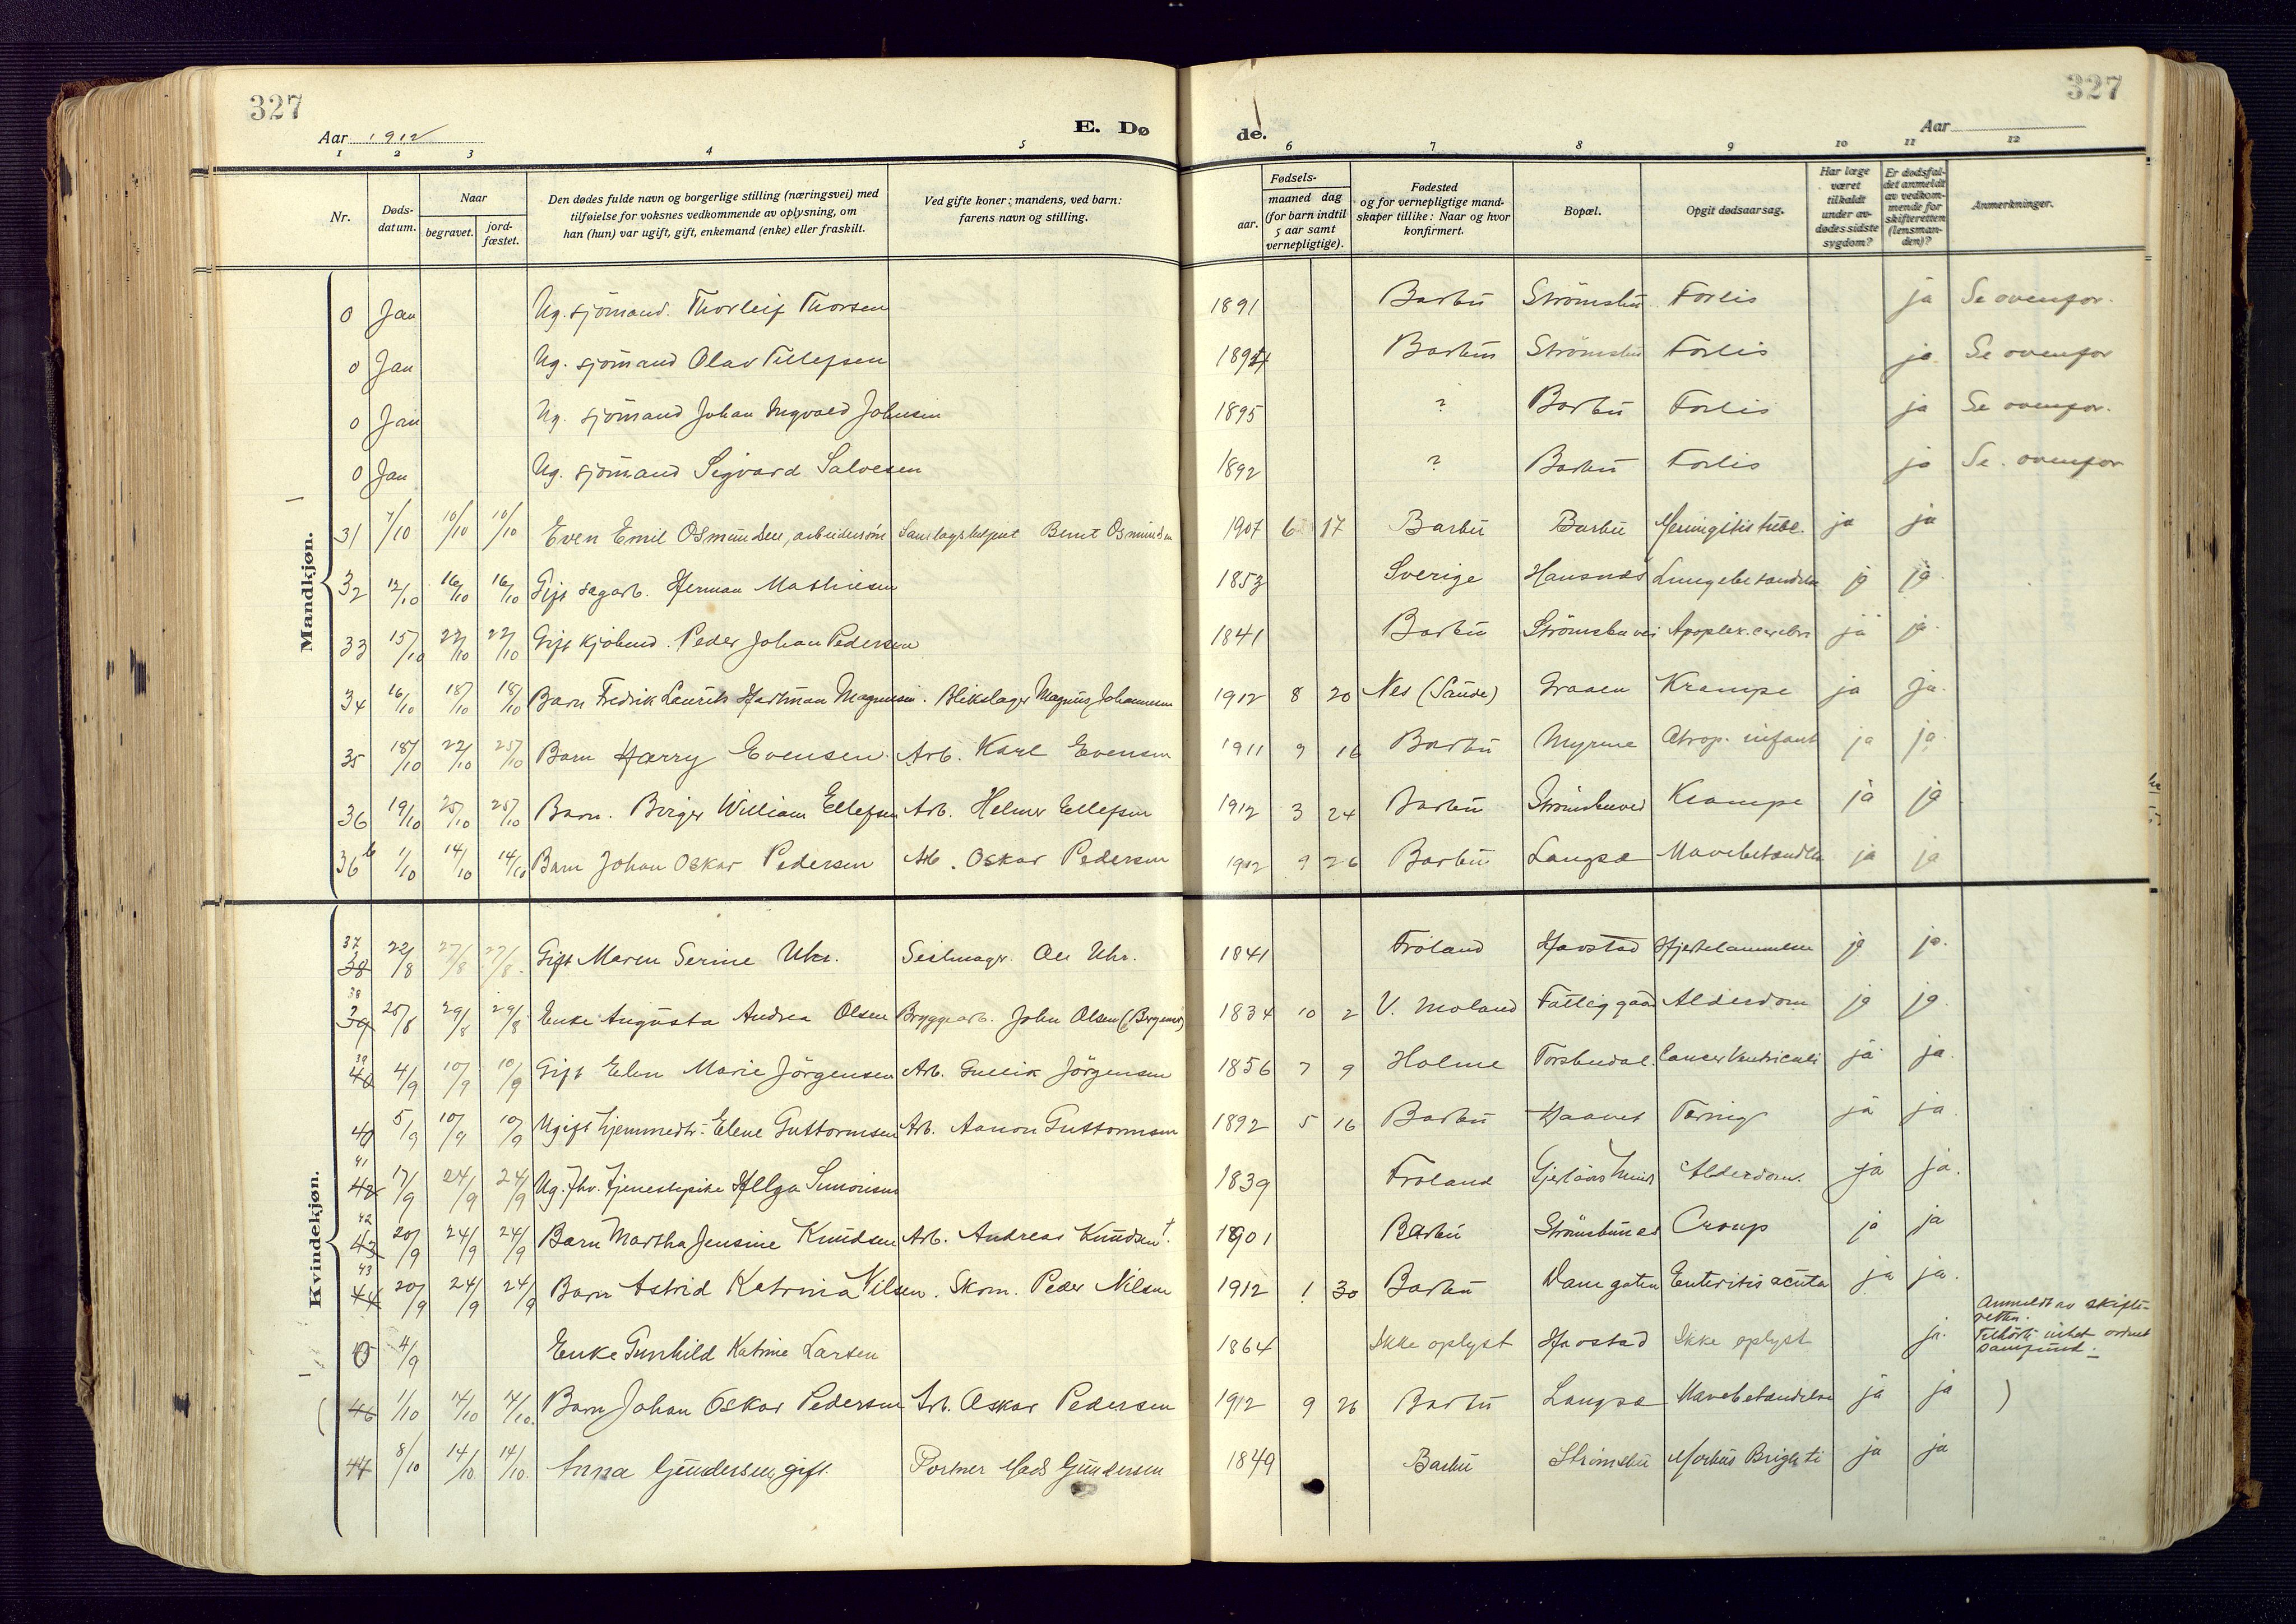 327
327
Aar 1912
E. Dø
de.
Aar
1 2 3 4 5 6 7 8 9 10 11 12
Nr.
Døds-
datum.
Naar
begravet.
jord-
fæstet.
Den dødes fulde navn og borgerlige stilling (næringsvei) med
tilføielse for voksnes vedkommende av oplysning, om
han (hun) var ugift, gift, enkemand (enke) eller fraskilt.
Ved gifte koner: mandens, ved barn:
farens navn og stilling.
Fødsels-
aar.
maaned dag
(for barn indtil
5 aar samt
vernepligtige).
Fødested
og for vernepligtige mand-
skaper tillike: Naar og hvor
konfirmert.
Bopæl.
Opgit dødsaarsag.
Har læge
været
tilkaldt
under av-
dødes sidste
sygdom?
Er dødsfal-
det anmeldt
av vedkom-
mende for
skifteretten
(lensman-
den)?
Anmerkninger.
Mandkjøn.
0 Jan Ug. sjömand. Thorleif Thorsen 1891 Barbu Strömsbu Forlis ja Se ovenfor.
0 Jan Ug. sjömand Olav Tellefsen Barbu Strömsbu Forlis ja Se ovenfor
0 Jan Ug. sjömand Johan Ingvald Johnsen 1895 ? Barbu Forlis ja Se ovenfor.
0 Jan Ug. sjömand Sigvard Salvesen 1892 ? Barbu Forlis ja Se. ovenfor
31 7/10 10/10 10/10 Even Emil Osmundsen, arbeidersön Bernt Osmundsen 1907 6 17 Barbu Barbu Meningitis tube. ja ja
32 12/10 16/10 16/10 Gift sagarb. Herman Mathiesen 1853 Sverige Hansnes Lungebetændelse ja ja.
33 15/10 22/10 22/10 Gift kjöbmd. Peder Johan Pedersen 1841 Barbu Strömsbuvei Apoplex. cerebri ja ja.
34 16/10 18/10 18/10 Barn Fredrik Laurits Hartman Magnussen. Blikslager Magnus Johannesen 1912 8 20 Nes (Sande) Graaen Krampe ja ja.
35 18/10 22/10 25/10 Barn Harry Evensen. Arb. Karl Evensen 1911 9 16 Barbu Myrene Atrop. infant ja ja.
36 19/10 25/10 25/10 Barn. Birger William Ellefsen Arb. Helmer Ellefsen 1912 3 24 Barbu Strömsbuvei Krampe ja ja
36b 1/10 14/10 14/10 Barn Johan Oskar Pedersen Arb. Oskar Pedersen 1912 9 26 Barbu Langsæ Mavebetændelse ja ja
Kvindekjøn.
37
38 22/8 27/8 27/8. Gift Maren Serine Uhr. Seilmager. Ole Uhr. 1841 Froland Havstad Hjertelammelse ja ja.
38
39 25/8 29/8 29/8 Enke Augusta Andrea Olsen Bryggearb. John Olsen 1834 10 2 V. Moland Fattiggaard Alderdom ja ja.
39
40 4/9 10/9 10/9 Gift Elen Marie Jörgensen Arb. Gullik Jörgensen 1856 7 9 Holme Torsbudal. Cancer Ventriculi ja ja.
40 5/9 10/9 10/9 Ugift hjemmedtr. Elene Guttormsen Arb. Aanon Guttormsen 1892 5 16 Barbu Haavet Tæring ja ja.
41
42 17/9 24/9 24/9 Ug. fhv. tjenestepike Helga Simonsen 1839 Froland Alderdom. ja ja.
42
43 20/9 24/9 24/9 Barn Martha Jensine Knudsen Arb. Andreas Knudsen†. 1901 Barbu Croup ja ja
43
44 20/9 24/9 24/9 Barn Astrid Katrina Nilsen. Skom. Peder Nilsen 1912 1 30 Barbu Damgaten Enteritis acuta ja ja.
Anmeldt av skifte-
retten.
0 4/9 Enke Gunhild Katrine Larsen 1864 Ikke oplyst Havstad Ikke oplyst ja. Tilhörte intet ordnet
samfund.
( 46 1/10 14/10 14/10. Barn Johan Oskar Pedersen Arb. Oskar Pedersen 1912 9 26 Barbu Langsæ Mavebetændelse ja ja )
44 8/10 14/10 14/10. Anna Gundersen, gift. Portner Mads Gundersen 1849 Barbu Strömsbu Morbus Brighti ja ja